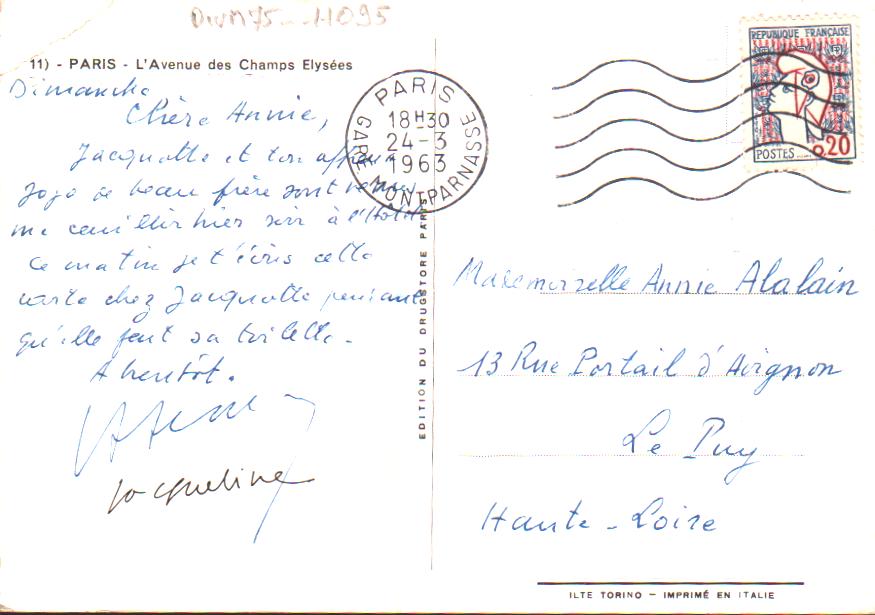 DivM75 - 11095
11) - PARIS - L'Avenue des Champs Elysées
Dimanche
Chère Annie,
Jacquotte et ton
Jojo le beau frère sont venus
me cueillir hier soir à l'Hôtel
Ce matin je t'écris cette
carte chez Jacquotte pendant
qu'elle fait sa toilette.
A bientôt.
Jacqueline
EDITION DU DRUGSTORE PARIS
PARIS
18H30
24-3
1963
GARE MONTPARNASSE
REPUBLIQUE FRANÇAISE
POSTES
0,20
Mademoiselle Annie Alalain
13 Rue Portail d'Avignon
Le Puy
Haute-Loire
ILTE TORINO - IMPRIMÉ EN ITALIE